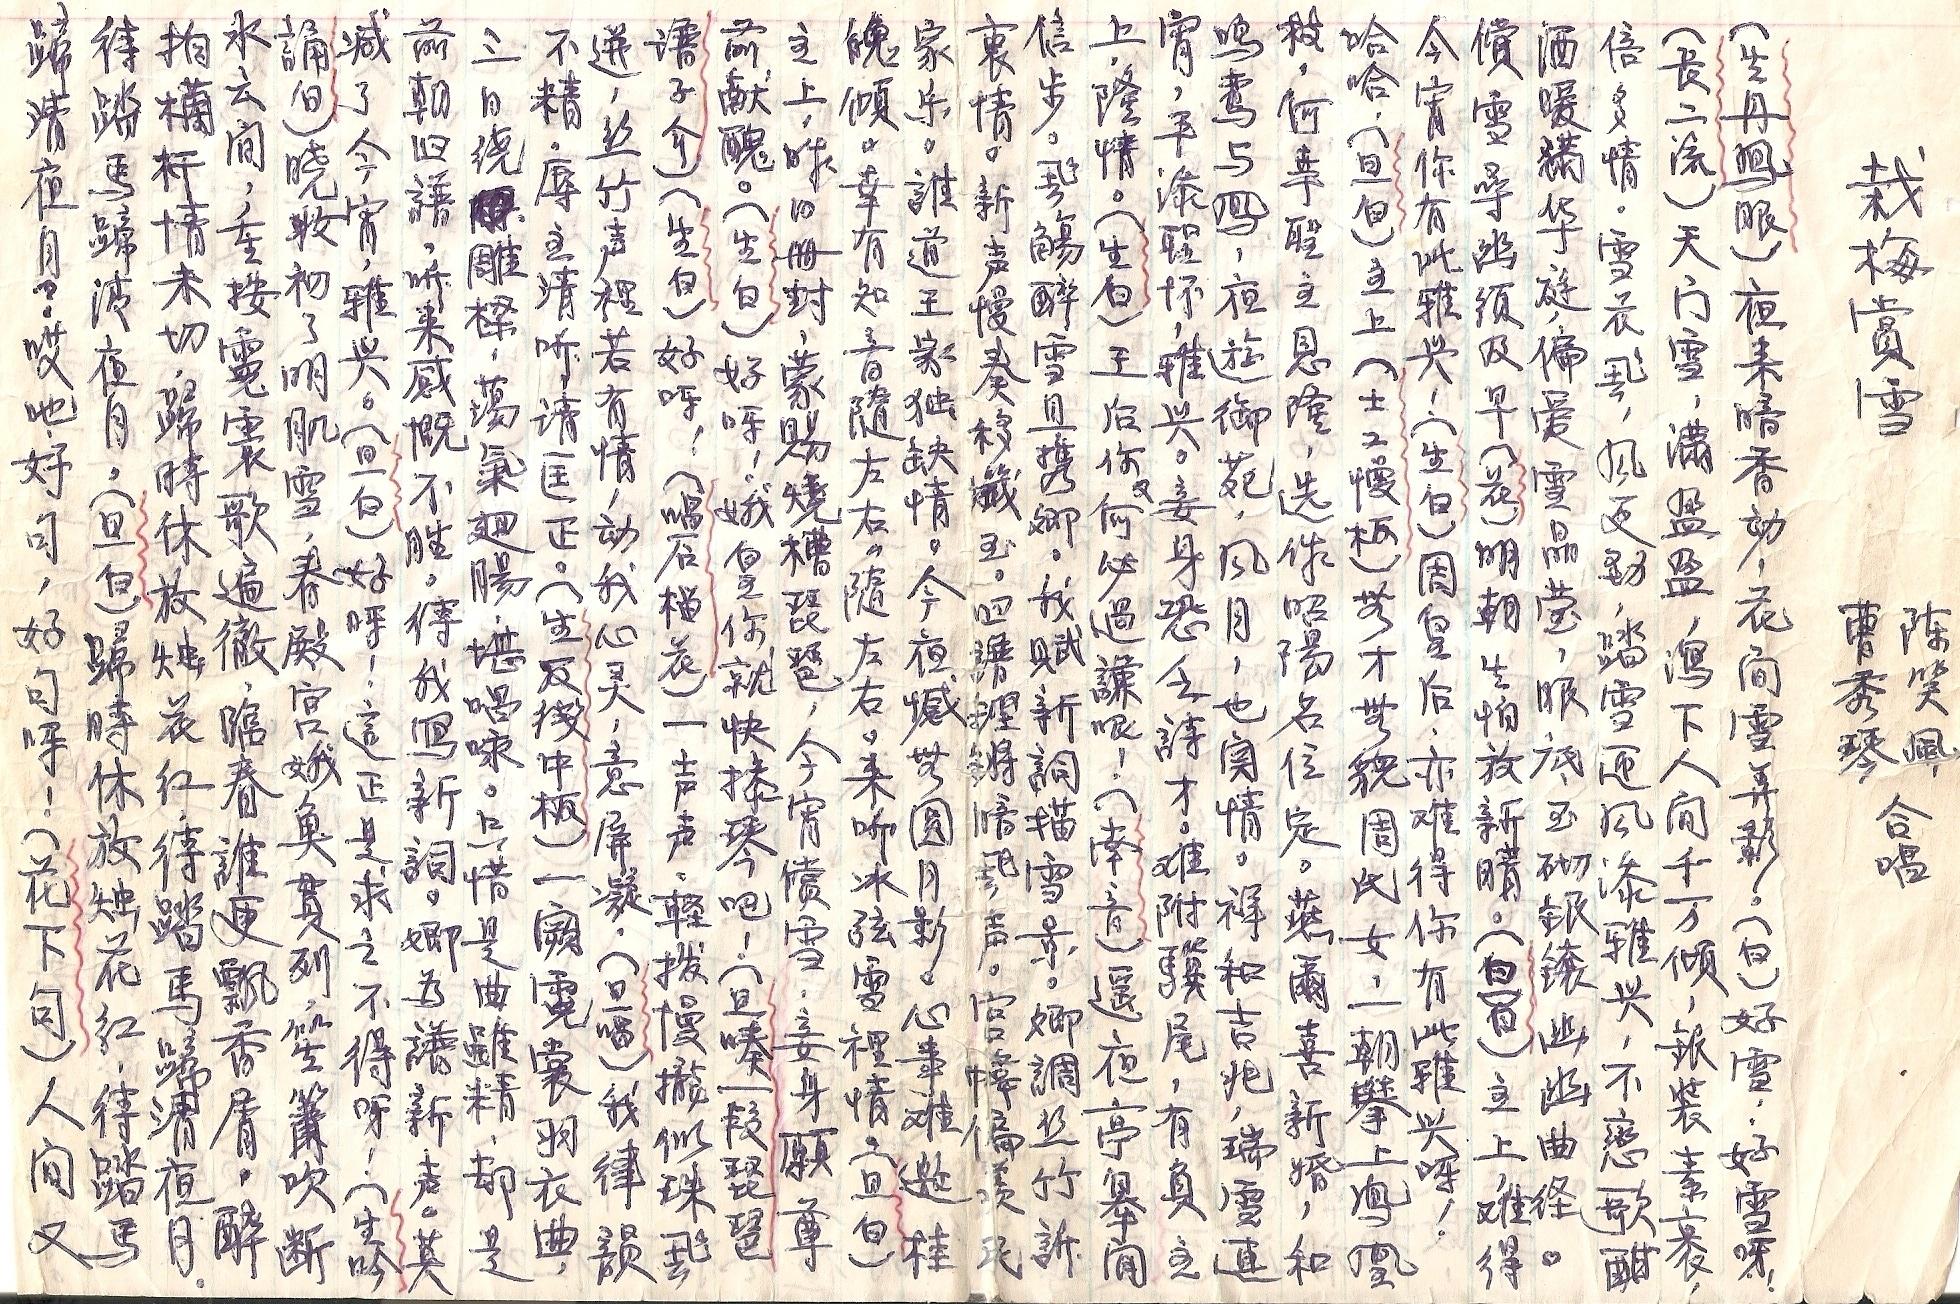 栽梅賞雪
陈笑風
曹秀琴 合唱
(生丹鳳眼)夜来暗香动,花间雪弄影。(白)好雪,好雪呀!
(長二流)天门雪,满盈盈,瀉下人间千万倾,銀裝素裹,
倍多情。雪花飛,风更勁,踏雪迎风添雅兴,不戀歌酣
酒暖綉华庭,偏爱雪晶莹,眼底玉砌銀鑲幽幽曲徑。
償雪尋幽须及早(花)明朝生怕放新晴。(白)主上,难得
今宵你有此雅兴,(生白)周皇后,亦难得你有此雅兴呀!
哈哈,(旦白)主上(士工慢板)无才无貌周氏女,一朝攀上鳳凰
枝,何幸聖主恩隆,选作昭陽名位定。燕爾喜新婚,和
鳴鸾与鳳,夜遊御苑,风月,也寅情。祥和吉兆,瑞雪連
宵,平添聖怀,雅兴。妾身恐乏詩才。难附驥尾,有負主
上,隆情。(生白)王后你又何必過謙呢!(南音)遥夜亭皋间
信步。飛觴醉雪且携卿。我賦新詞描雪景。卿調丝竹訴
衷情。新声慢奏移纖玉。四講鏗鏘暗飛声。宫幃偏羨民
家乐。誰道王家独缺情。今夜憾无圓月影。心事难邀桂
魄傾。幸有知音隨左右,隨左右。来听冰弦雪裡情。(旦白)
主上,昨日册封,蒙赐燒槽琵琶,今宵償雪,妾身願尊
前献醜。(生白)好呀!娥皇你就快操琴吧!(旦奏一段琵琶
譜子介)(生白)好呀!(唱后檣花)一声声,輕拨慢攏似珠飛
迸,丝竹声裡若有情,动我心灵,意屏凝。(旦唱)我律韻
不精,辱主清听,请匡正。(生反线中板)一阙霓裳羽衣曲,
三日绕雕樑,蕩氣廻腸,堪唱咏。只惜是曲雖精,却是
前朝旧譜,听来感慨不胜。待我寫新詞。卿为譜新声。莫
减了今宵,雅兴。(旦白)好呀!這正是求之不得呀!(生吟
誦白)晓妝初了明肌雪,春殿宫娥魚贯列,笙簫吹断
水云间,重按霓裳歌遍徹,臨春誰更飄香屑。醉
拍欄杆情未切,歸時休放烛花红,待踏馬蹄清夜月。
待踏馬蹄清夜月。(旦白)歸時休放烛花红,待踏馬
蹄清夜月。哎吔,好句,好句呀!(花下句)人间又